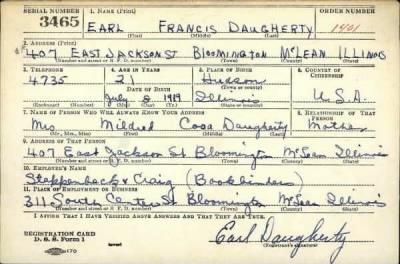 SERIAL NUMBER 1. NAME (Print) ORDER NUMBER
3465 EARL FRANCIS DAUGHERTY 1401
(First) (Middle) (Last)
2. ADDRESS (Print)
407 EAST JACKSON ST BLOOMINGTON MCLEAN ILLINOIS
(Number and street or R. F. D. number) (Town) (County) (State)
3. TELEPHONE 4. AGE IN YEARS 5. PLACE OF BIRTH 6. COUNTRY OF CITIZENSHIP
4735 21 Hudson
DATE OF BIRTH (Town or county)
July 1919 Illinois U.S.A.
(Exchange) (Number) (Mo.) (Day) (Yr.) (State or country)
7. NAME OF PERSON WHO WILL ALWAYS KNOW YOUR ADDRESS 8. RELATIONSHIP OF THAT PERSON
Mrs Mildred Daugherty Mother
(Mr., Mrs., Miss) (First) (Middle) (Last)
9. ADDRESS OF THAT PERSON
407 East Jackson St Bloomington McLean Illinois
(Number and street or R. F. D. number) (Town) (County) (State)
10. EMPLOYER'S NAME
& Craig (Bookbinders)
11. PLACE OF EMPLOYMENT OR BUSINESS
311 South Center St Bloomington McLean Illinois
(Number and street or R. F. D. number) (Town) (County) (State)
I AFFIRM THAT I HAVE VERIFIED ABOVE ANSWERS AND THAT THEY ARE TRUE.
REGISTRATION CARD
D. S. S. Form 1 Earl Daugherty
(Registrant's signature)